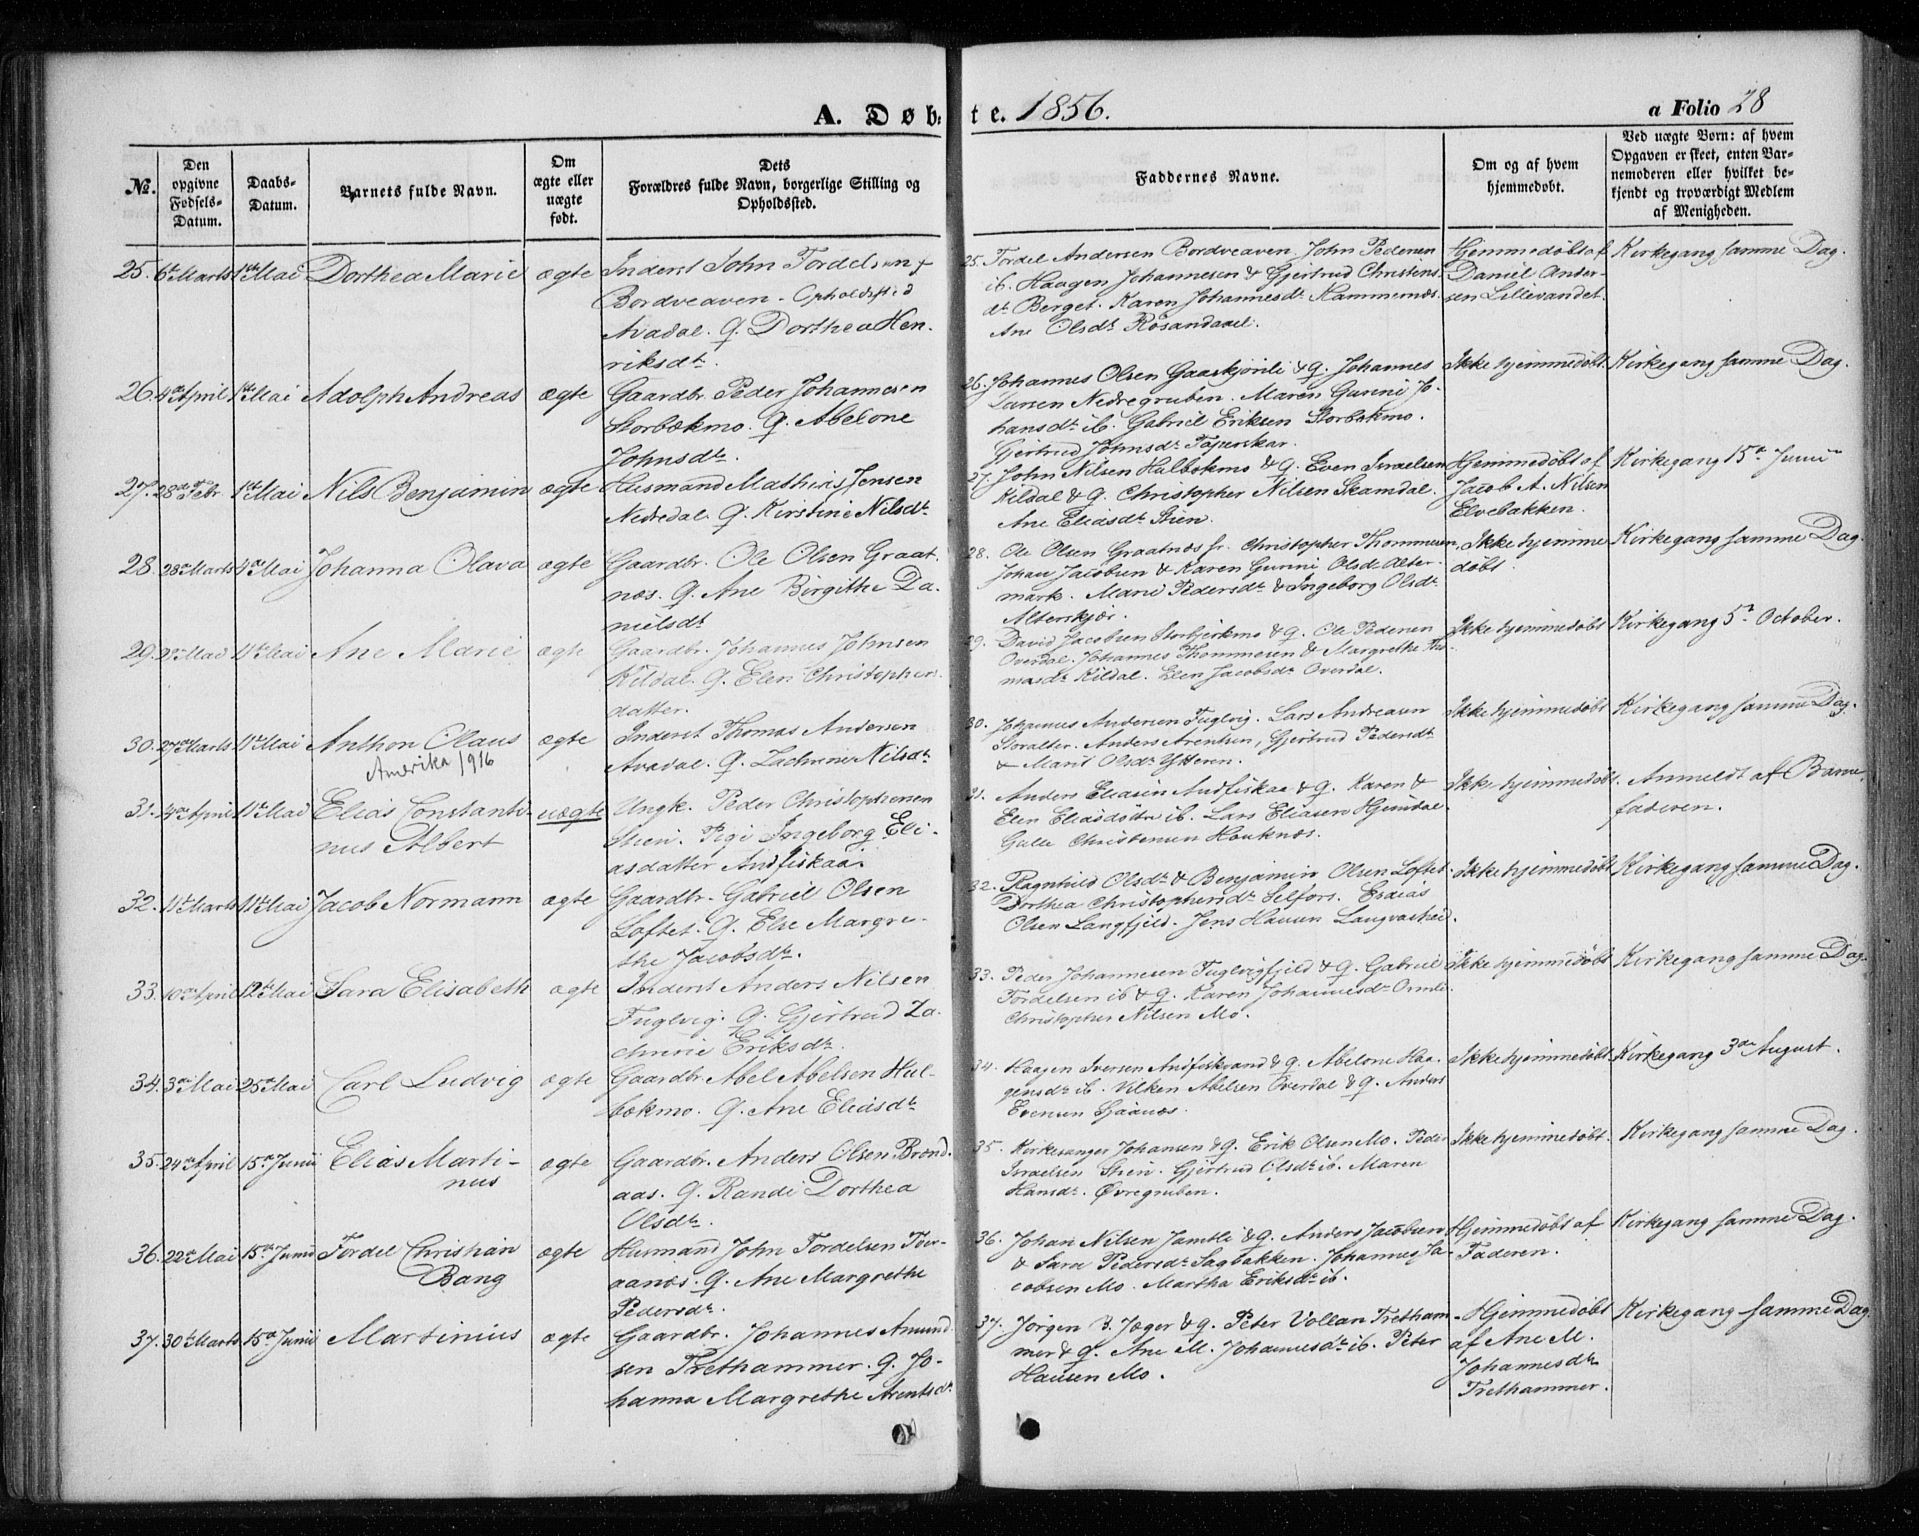 A. Døb=
te. 1856.
a Folio 28
№.
Den opgivne Fødsels-Datum.
Daabs-Datum.
Barnets fulde Navn.
Om ægte eller uægte født.
Dets
Forældres fulde Navn, borgerlige Stilling og
Opholdssted.
Faddernes Navne.
Om og af hvem
hjemmedøbt.
Ved uægte Børn: af hvem
Opgaven er skeet, enten Bar-
nemoderen eller hvilket be-
kjendt og troværdigt Medlem
af Menigheden.
25. 6te Marts 1ste Mai Dorthea Marie ægte Inderst John Tordelsen
Bordveaven - Opholdssted
Avadal. Q. Dorthea Hen-
riksdtr.
25. Tordel Andersen Bordveaven, John Pedersen
ib. Haagen Johannesen & Gjertrud Christens
dr. Berget. Karen Johannesdr. Hammernæs.
Ane Olsdr. Røsandaael.
Hjemmedøbt af
Daniel Ander-
sen Lillevandet.
Kirkegang samme Dag.
26. 4de April 1ste Mai Adolph Andreas ægte Gaardbr. Peder Johannesen
Storbækmo. Q. Abelone
Johnsdtr.
26. Johannes Olsen Gaaskjönli & Q. Johannes
Larsen Nedregruben. Maren Gurine Jo-
hansdr. ib. Gabriel Eriksen Storbækmo.
Gjertrud Johnsdr. Tajerskar.
Ikke hjemmedøbt.
Kirkegang samme Dag.
27. 28de Febr. 1ste Mai Nils Benjamin ægte Husmand Mathias Jensen
Nedredal. Q. Kirstine Nilsdr.
27. John Nilsen Halbækmo & Q. Even Israelsen
Kildal & Q. Christopher Nilsen Skamdal.
Ane Eliasdr. Stien.
Hjemmedøbt af
Jacob A. Nilsen
Elvebakken.
Kirkegang 15de Junii
28. 28de Marts 4de Mai Johanna Olava ægte Gaardbr. Ole Olsen Graat-
næs. Q. Ane Birgithe Da-
nielsdr.
28. Ole Olsen Graatnæs sr. Christopher Thommesen,
Johan Jacobsen & Karen Gurine Olsdr. Alter-
mark. Marie Pedersdr. & Ingeborg Olsdr.
Alterskjær.
Ikke hjemme
døbt.
Kirkegang samme Dag.
29. 2den Mai 11te Mai Ane Marie ægte Gaardbr. Johannes Johnsen
Kildal. Q. Elen Christophers-
datter.
29. David Jacobsen Storbjerkmo & Q. Ole Pedersen
Overdal. Johannes Thommesen & Margrethe Tho-
masdr. Kildal. Elen Jacobsdr. Overdal.
Ikke hjemmedøbt
Kirkegang 5te October.
30. 27de Marts 11te Mai Anthon Olaus ægte Inderst Thomas Andersen
Amerika 1916
Avadal. Q. Zachrine Nilsdr.
30. Johannes Andersen Fuglvig. Lars Andreasen
Storalter. Anders Arentsen, Gjertrud Pedersdr.
& Marit Olsdr. Ytteren.
Ikke hjemmedøbt
Kirkegang samme Dag.
31. 14de April 11te Mai Elias Constanti- uægte Ungk. Peder Christophersen
nus Albert
Stien. Pige Ingeborg Eli-
asdatter Andfiskaa.
31. Anders Eliasen Andfiskaa & Q. Karen &
Elen Eliasdøttre ib. Lars Eliasen Hjemdal
Galle Christensen Hauknæs.
Ikke hjemmedøbt.
Anmeldt af Barne-
faderen.
32. 11te Marts 11te Mai Jacob Normann ægte Gaardbr. Gabriel Olsen
Loftet. Q. Else Margre-
the Jacobsdr.
32. Ragnhild Olsdr. & Benjamin Olsen Loftet.
Dorthea Christophersdr. Selfors. Esaias
Olsen Langfjeld. Jens Hansen Langvasheid.
Ikke hjemmedøbt
Kirkegang samme Dag.
33. 10de April 12te Mai Sara Elisabeth ægte Inderst Anders Nilsen
Fuglvig. Q. Gjertrud Za-
chrine Eriksdr.
33. Peder Johannesen Fuglvigfjeld & Q. Gabriel
Tordelsen ib & Q. Karen Johannesdr. Ormli.
Christopher Nilsen Mo.
Ikke hjemmedøbt
Kirkegang samme Dag.
34. 3die Mai 25de Mai Carl Ludvig ægte Gaardbr. Abel Abelsen Hal-
bækmo. Q. Ane Eliasdr.
34. Haagen Iversen Andfiskvand & Q. Abelone Haa-
gensdr. ib. Vilken Abelsen Overdal & Q. Anders
Evensen Gjaanæs.
Ikke hjemmedøbt
Kirkegang 3die August.
35. 24de April 15de Junii Elias Marti-
nus ægte Gaardbr. Anders Olsen Brend-
aas. Q. Randi Dorthea
Olsdr.
35. Kirkesanger Johansen & Q. Erik Olsen Mo. Peder
Israelsen Stien. Gjertrud Olsdr. ib. Maren
Hansdr. Øvregruben.
Ikke hjemmedøbt.
Kirkegang samme Dag.
36. 22de Mai 15de Junii Tordel Christian
Bang ægte Husmand John Tordelsen Tver-
aanæs. Q. Ane Margrethe
Pedersdr.
36. Johan Nilsen Jamtli & Q. Anders Jacobsen
& Sara Pedersdr. Sagbakken. Johannes Ja-
cobsen Mo. Martha Eriksdr. ib.
Hjemmedøbt af
Faderen.
Kirkegang samme Dag.
37. 30te Marts 15de Junii Martinius ægte Gaardbr. Johannes Amund-
sen Trethammer. Q. Jo-
hanna Margrethe Arentsdr.
37. Jørgen B. Jæger & Q. Peter Vollan Tretham-
mer & Q. Ane M. Johannesdr. ib. Peter
Hansen Mo.
Hjemmedøbt
af Ane M.
Johannesdr.
Trethammer.
Kirkegang samme Dag